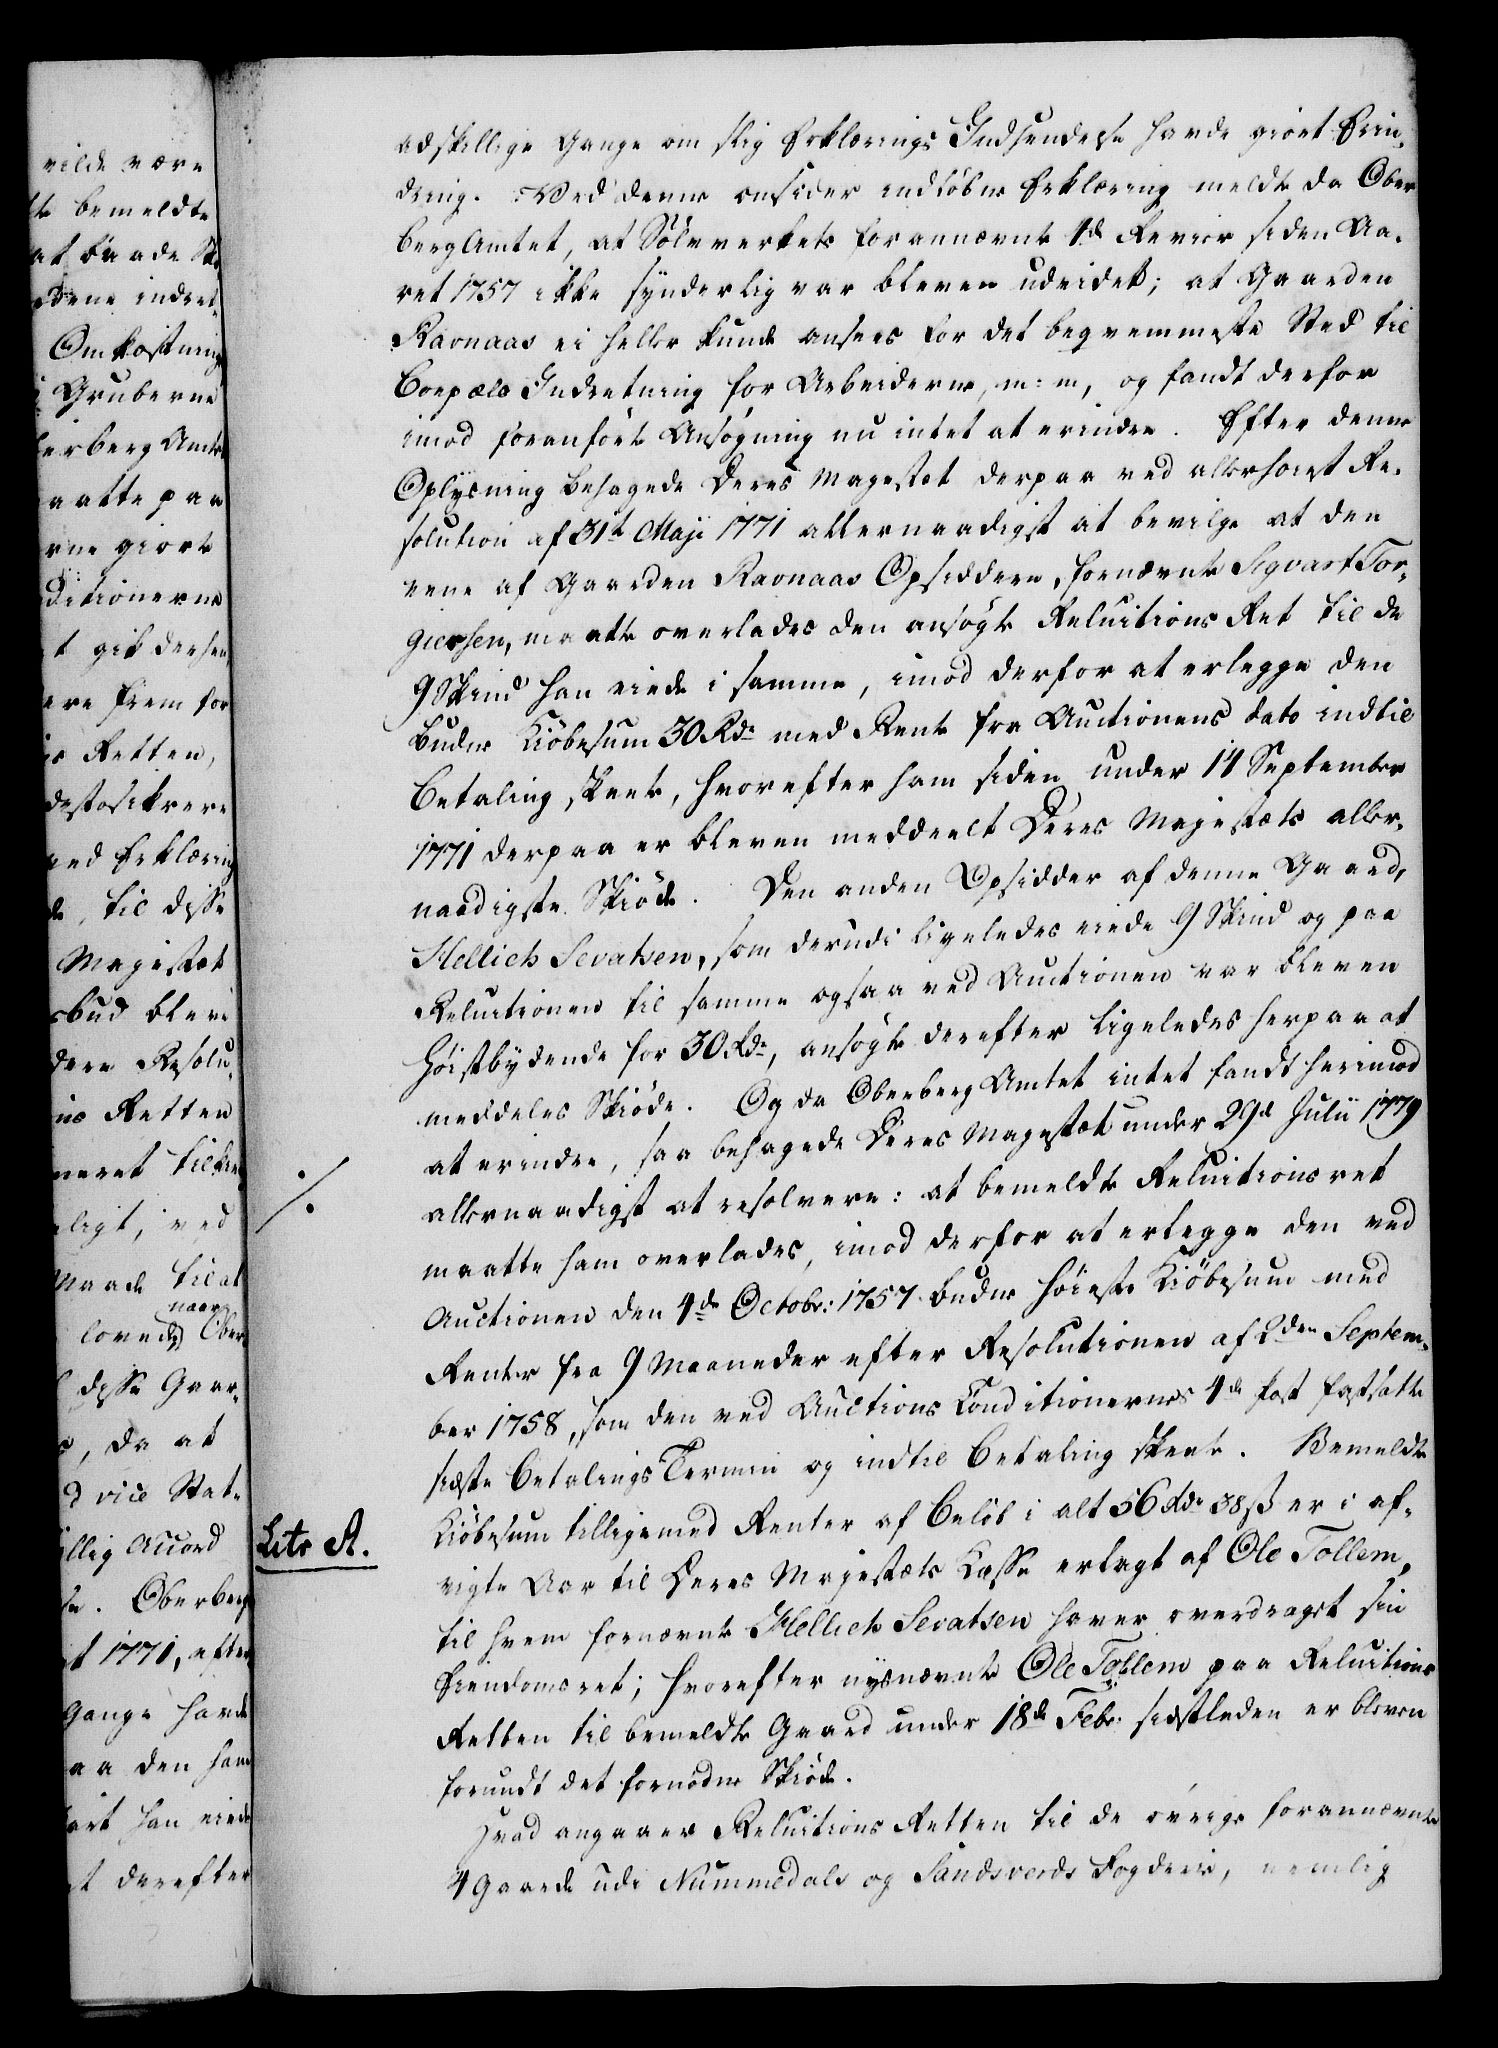 vilde være
bemeldte
at baade
indret
Omkostning
Gruberne
erberg Amtet
aatte paa
rne giort
ditionerne
t gik dersom
ere frem for
Retten,
desto sikrere
ved Erklæring
de, til disse
Magestæt
sbud bleve
dere Resolu-
Retten
neret
ligt, ved
Maade til at
naar
lovede Ober
disse Gaar-
, da at
d vice Stat-
illig Accord
se. Oberberg
t 1771, efter
Gange havde
aa den ham
han eiede
st derefter
adskillige Gange om slig Erklærings Indsendelse havde giort Erin-
dring. Ved denne omsider indløbne Erklæring meldte da Ober
bergAmtet, at Sölvverkets forannævnte 4de Revier siden Aa-
ret 1757 ikke synderlig var bleven udvidet; at Gaarden
Ravnaas ei heller kunde ansees for det beqvemmeste Sted til
Coepæls Indretning for Arbeiderne, m: m, og fandt derfor
imod foranførte Ansøgning nu intet at erindre. Efter denne
Oplysning behagede Deres Magestæt derpaa ved allerhøiest Re-
solution af 31te Maji 1771 allernaadigst at bevilge at den
eene af Gaarden Ravnaas Opsiddere, fornævnte Sigvart Tor-
giersen, maatte overlades den ansøgte Reluitions Ret til de
9 Skind han eiede i samme, imod derfor at erlegge den
budne Kiöbesum 30 Rdr med Rente fra Auctionens dato indtil
Betaling skeete, hvorefter ham siden under 14 September
1771 derpaa er bleven meddeelt Deres Majestæts aller-
naadigste Skiöde. Den anden Opsidder af denne Gaard,
Hellich Sevatsen, som derudi ligeledes eiede 9 Skind og paa
Reluitionen til samme ogsaa ved Auctionen var bleven
höistbydende for 30 Rdr, ansøgte derefter ligeledes herpaa at
meddeles Skiöde. Og da Oberberg Amtet intet fandt herimod
at erindre, saa behagede Deres Magestæt under 29d Julii 1779
allernaadigst at resolvere: at bemeldte Reluitions ret
maatte ham overlades, imod derfor at erlegge den ved
Auctionen den 4de Octobr: 1757 budne höieste Kiöbesum med
Renter fra 9 Maaneder efter Resolutionen af 2den Septem-
ber 1758, som den ved Auctions Conditionernes 4de Post fastsatte
sidste Betalings Termin og indtil Betaling skeete. Bemeldte
Lits A.
Kiöbesum tilligemed Renter af Beløb i alt 56 Rdr 38 ß er i af-
vigte Aar til Deres Majestæts Kasse erlagt af Ole Tollem,
til hvem fornævnte Hellich Sevatsen haver overdraget sin
Eiendoms ret; hvorefter nysnævnte Ole Tollem paa Reluitions
Retten til bemeldte Gaard under 18de Febr: sidstleden er bleven
forundt det fornødne Skiöde.
Hvad angaaer Reluitions Retten til de övrige forannævnte
4 Gaarde udi Nummedals og Sandsverds Fogderie, nemlig